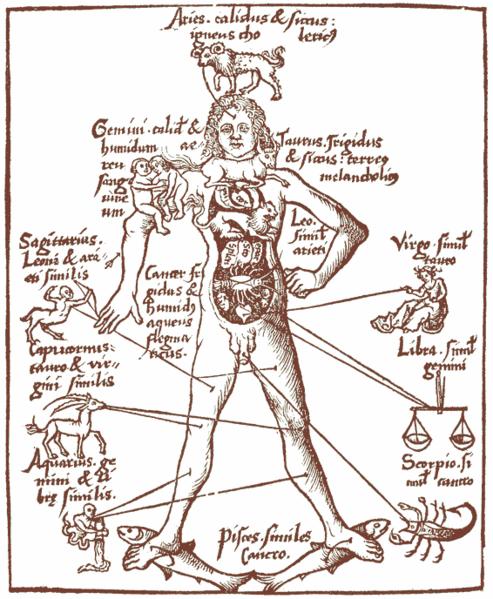 Aries. calidus & siccus:
igneus cho lericꝰ
Gemini. calid᷒ &
humidum ae
reu
sang
uine
um
Taurus. frigidus
& siccus: terreꝰ
melancholicꝰ
Leo.
simil
arieti
Cancer. fri
gidus &
humidꝰ
aqueus
flegma
ticus.
Sagittarius.
Leoni & ari
eti similis
Virgo. simil
tauro
Capricornus:
tauro & vir-
gini similis
Libra. simil
gemini
Aquarius. ge
mini & li
bre similis.
Scorpio. si
mil cancro
Pisces. similes
Cancro.